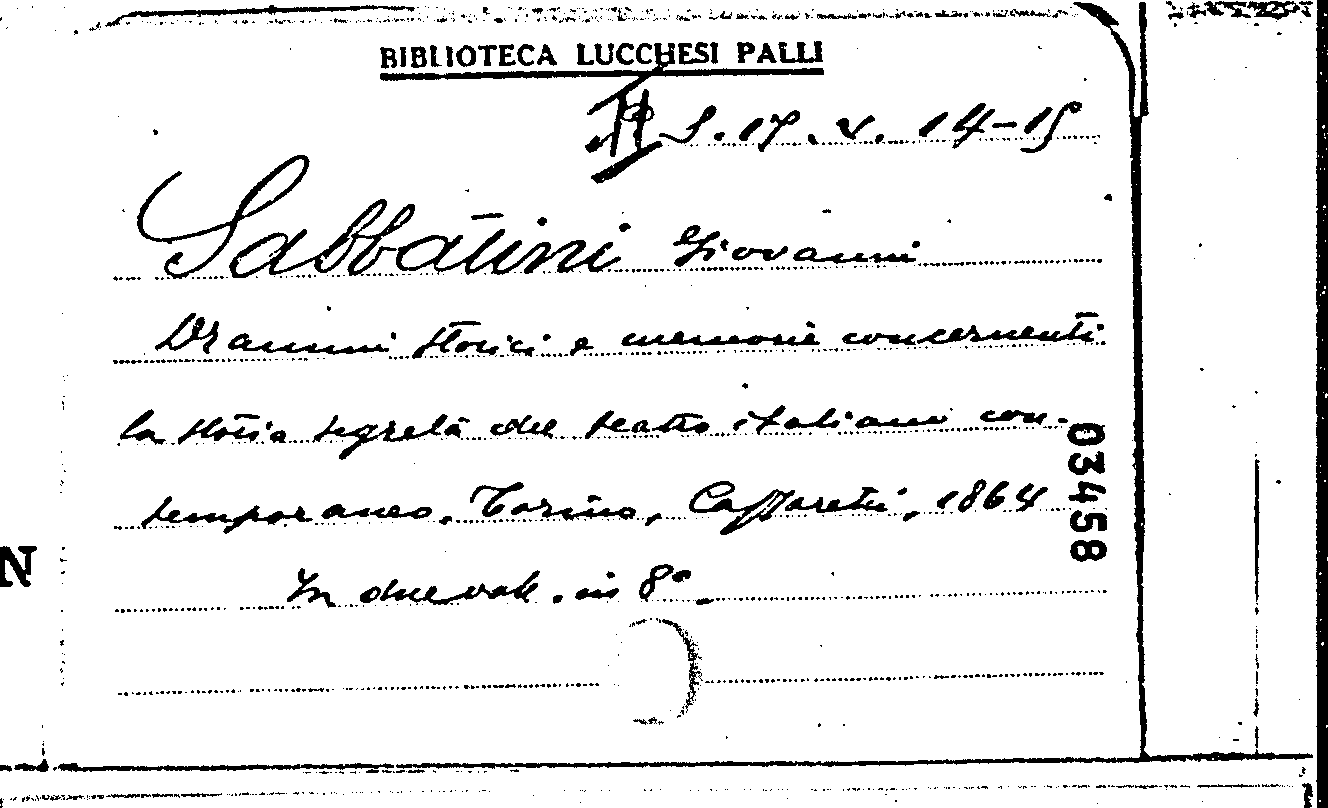 BIBLIOTECA LUCCHESI PALLI
S. 17. V. 14-15
Sabbatini Giovanni
Drammi storici e memorie concernenti
la storia segreta del teatro italiano con-
temporaneo. Torino, Caffaretti, 1864
In due voll. in 8°.
03458
N